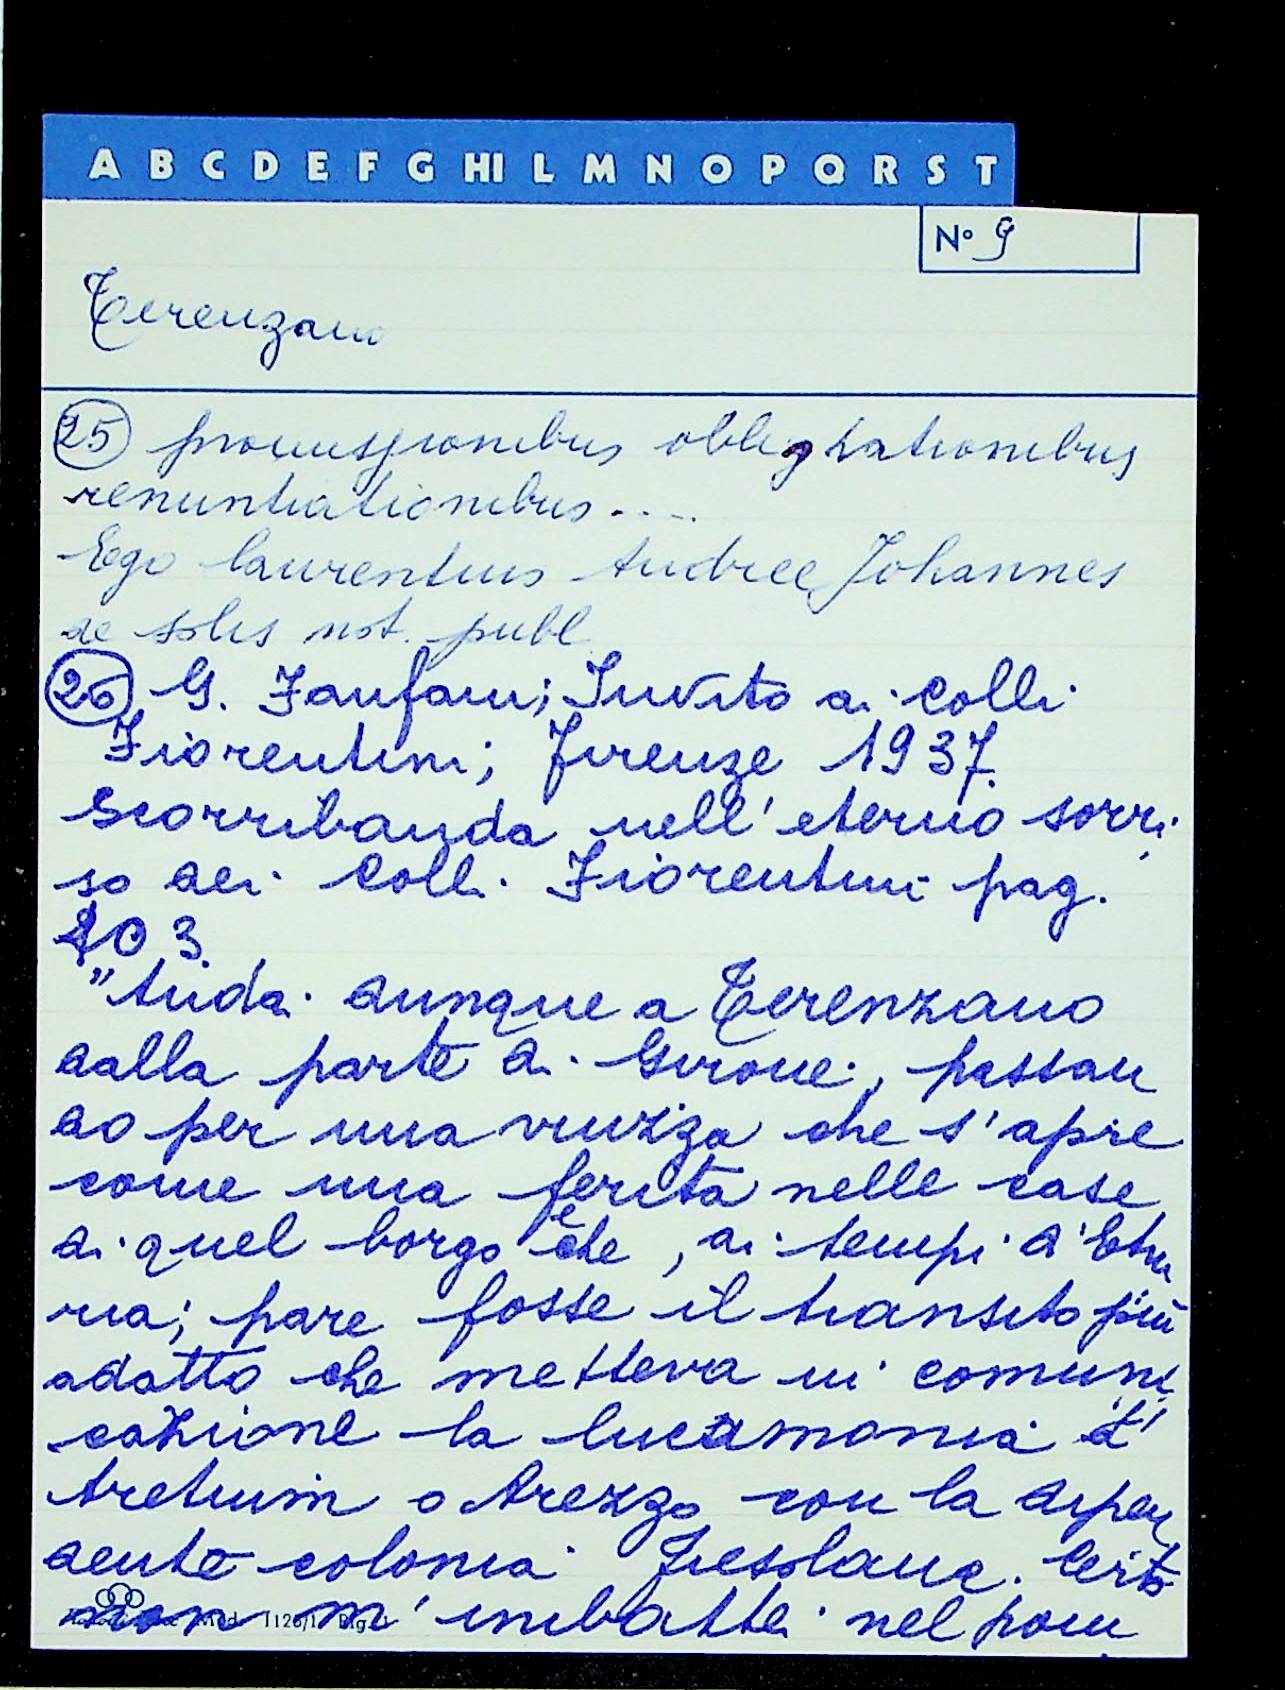 A B C D E F G HI L M N O P Q R S T
N° 9
Terenzano
25 promissionibus obligatationibus
renuntiationibus....
Ego laurentius Andree Johannes
de solis not. publ.
26 G. Fanfani; Invito ai colli
Fiorentini; firenze 1937.
Scorribanda nell'eterno sorri
so dei Colli Fiorentini pag.
203
"Andai dunque a Terenzano
dalla parte di Girone, passan
do per una viuzza che s'apre
come una ferita nelle case
di quel borgo che, ai tempi d'Etru
ria; pare fosse il transito più
adatto che metteva in comuni
cazione la lucumonia d'
Aretium o Arezzo con la dipen
dente colonia fiesolana. Certo
non m'imbattei nel pom